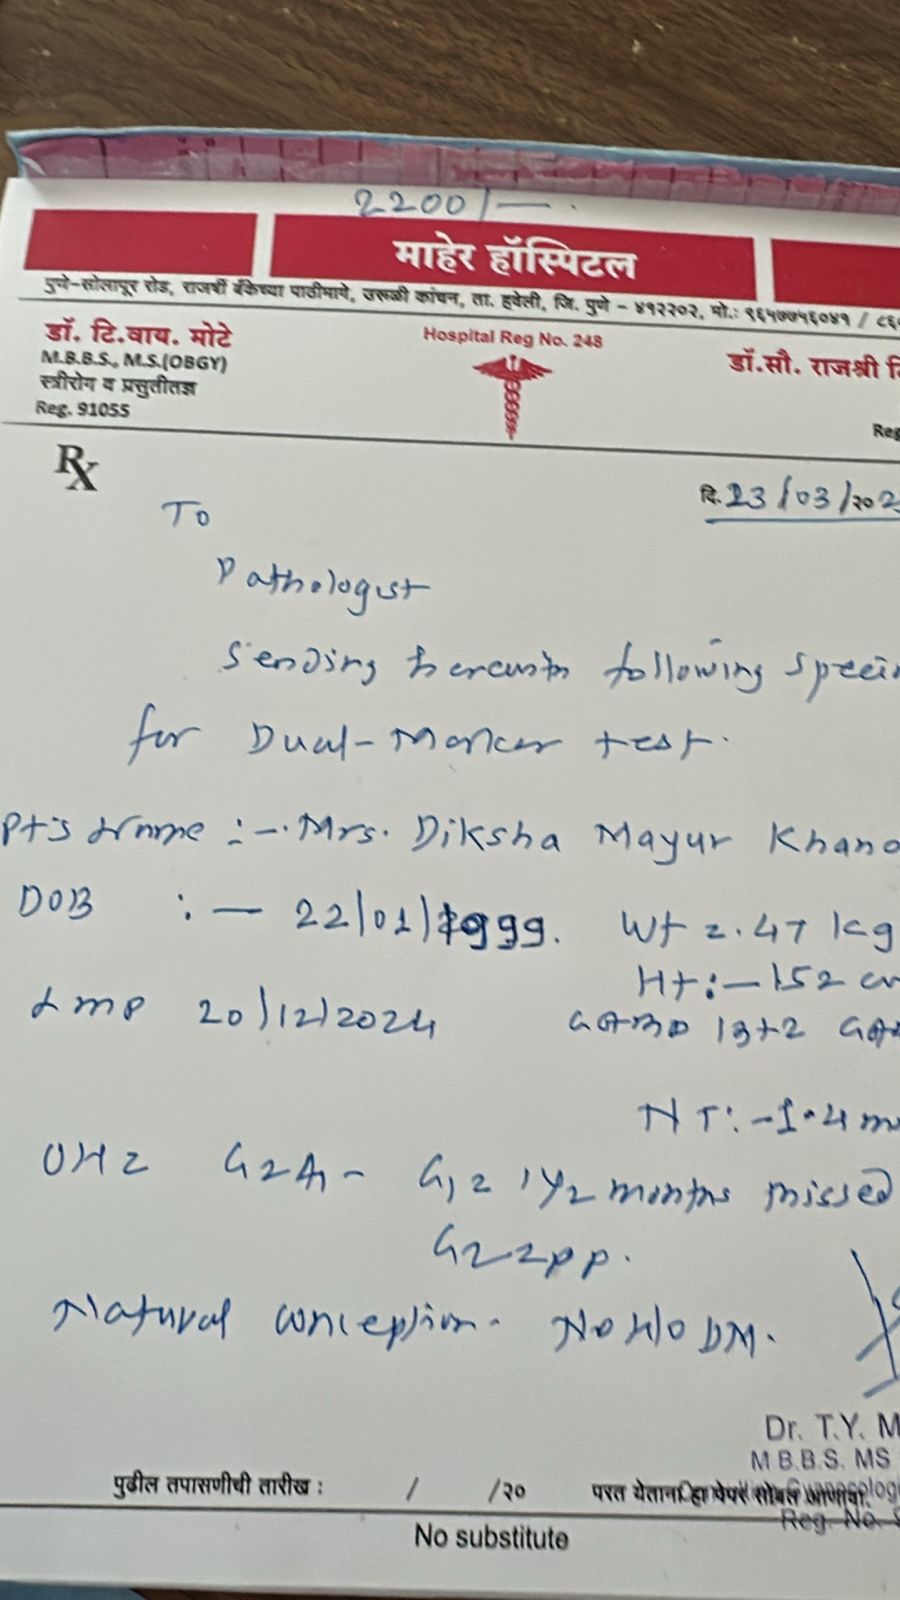 2200/—.
माहेर हॉस्पिटल
पुणे-सोलापूर रोड, राजर्षी बँकेच्या पाठीमागे, उरुळी कांचन, ता. हवेली, जि. पुणे - ४१२२०२, मो.: ९६५७७५६०४१ / ८६
डॉ. टि.वाय. मोटे
M.B.B.S., M.S.(OBGY)
स्त्रीरोग व प्रसुतीतज्ञ
Reg. 91055
Hospital Reg No. 248
डॉ.सौ. राजश्री
Reg
Rx
दि. 23/03/२०2
To
Pathologist
Sending herewith following speci
for Dual-Marker test.
Pt's Name :-. Mrs. Diksha Mayur Khan
DOB :- 22/01/1999. Wt = 47 kg
Ht :- 152 c
LMP 20/12/2024 13+2
NT: -1.4 m
OH = G2A1 - G1 = 1 1/2 months missed
G2 = pp.
Natural conception. No H/O DM.
Dr. T.Y. M
M.B.B.S. MS
पुढील तपासणीची तारीख : / /२० परत येताना हा पेपर सोबत आणावा.
Reg. No.
No substitute